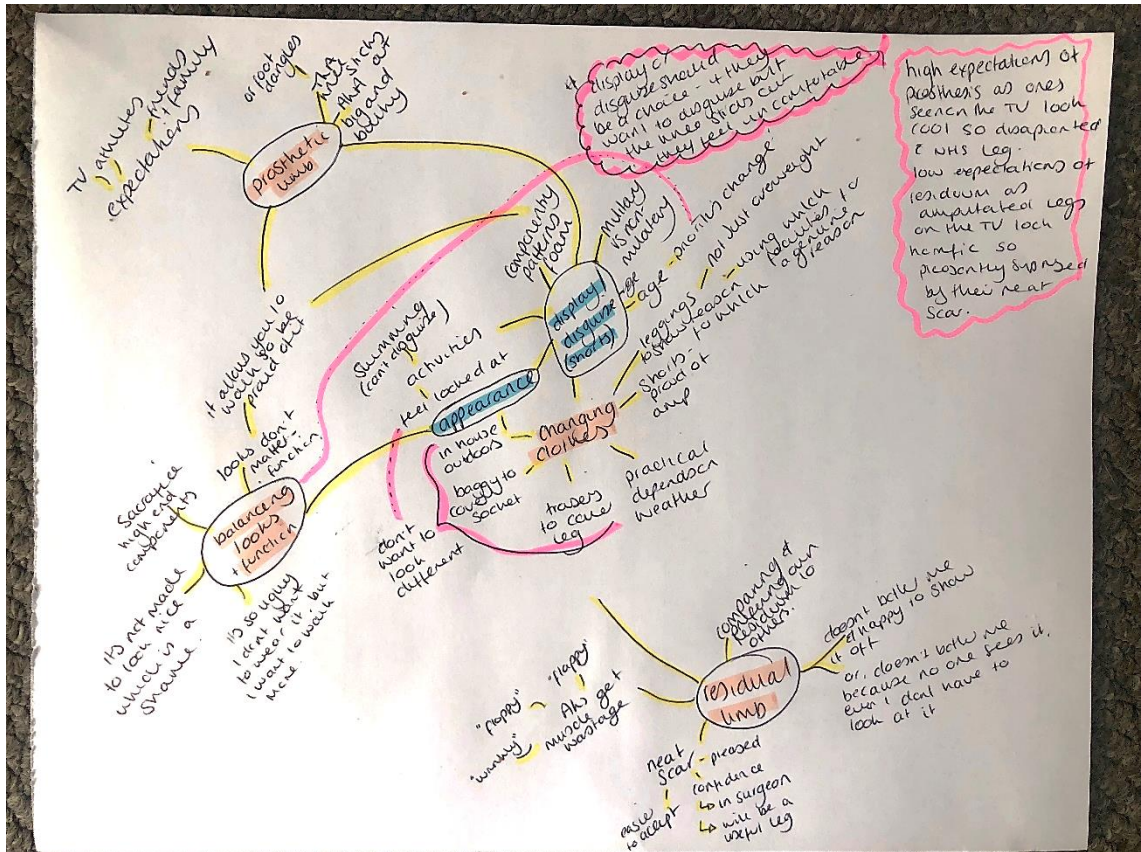 TV athletes
friends
+ family
expectations
or foot
dangles
AKA
knee sticks
out
big and
bulky
prosthetic
limb
display or
disguise should
be a choice - if they
want to disguise but
the knee sticks out
they feel uncomfortable
high expectations of
prosthesis as ones
seen on the TV look
cool so disapointed
NHS leg.
low expectations of
residuum as
amputated legs
on the TV look
horrific so
pleasently suprised
by their neat
scar.
componentry
patterns
foam
military
vs non-
military
display
disguise
(shorts)
age
age - priorities change
not just overweight
leggings
obvious reason
using which
formulates to
a genuine
reason
shorts -
proud of
amp
to which
swimming
(can't disguise)
activities
feel looked at
appearance
changing
clothes
in house
outdoors
baggy to
cover
socket
trousers
to cover
leg
practical
depends on
weather
don't
want to
look
different
it allows you to
walk so be
proud of it
looks don't
matter -
function
sacrifice
high end
components
balancing
looks
+ function
it's not made
to look nice
which is a
shame.
It's so ugly
I dont want
to wear it but
I want to walk
more.
comparing &
preferring own
residuum to
others.
residual
limb
doesn't bother me
& happy to show
it off
or, doesn't bother me
because no one sees it,
even I dont have to
look at it
AKs get
muscle
wastage
"floppy"
"flappy"
"wrinkly"
neat
scar - pleased
easier
to accept
confidence
↳ in surgeon
↳ will be a
useful leg